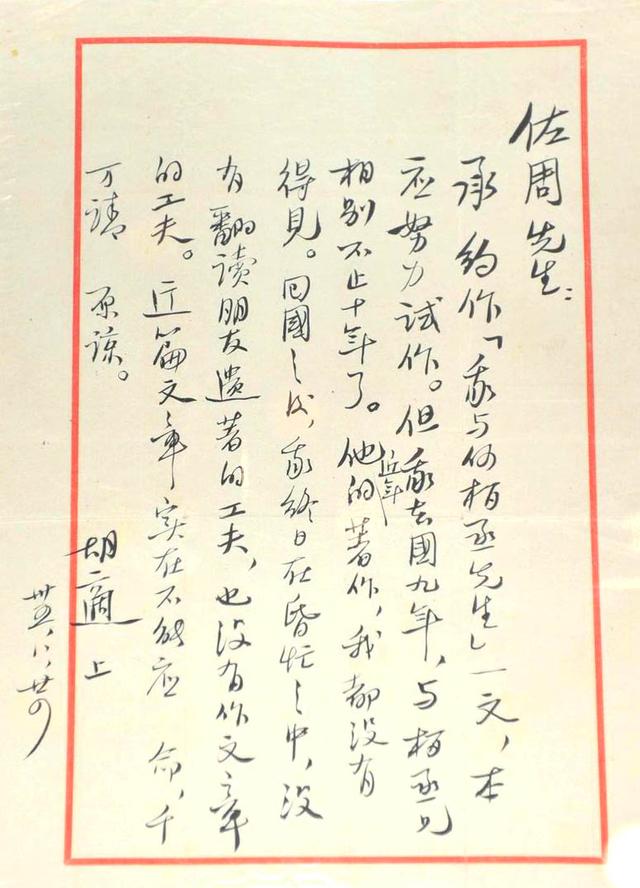 佐周先生：
承 約作「我与何柏丞先生」一文，本
应努力试作。但我去國九年，与柏丞兄
相别不止十年了。他的近年著作，我都没有
得見。回國之后，我终日在昏忙之中，没
有翻读朋友遗著的工夫，也没有作文章
的工夫。这篇文章实在不能应 命，千
万请 原谅。
胡适 上
卅五，八，廿四